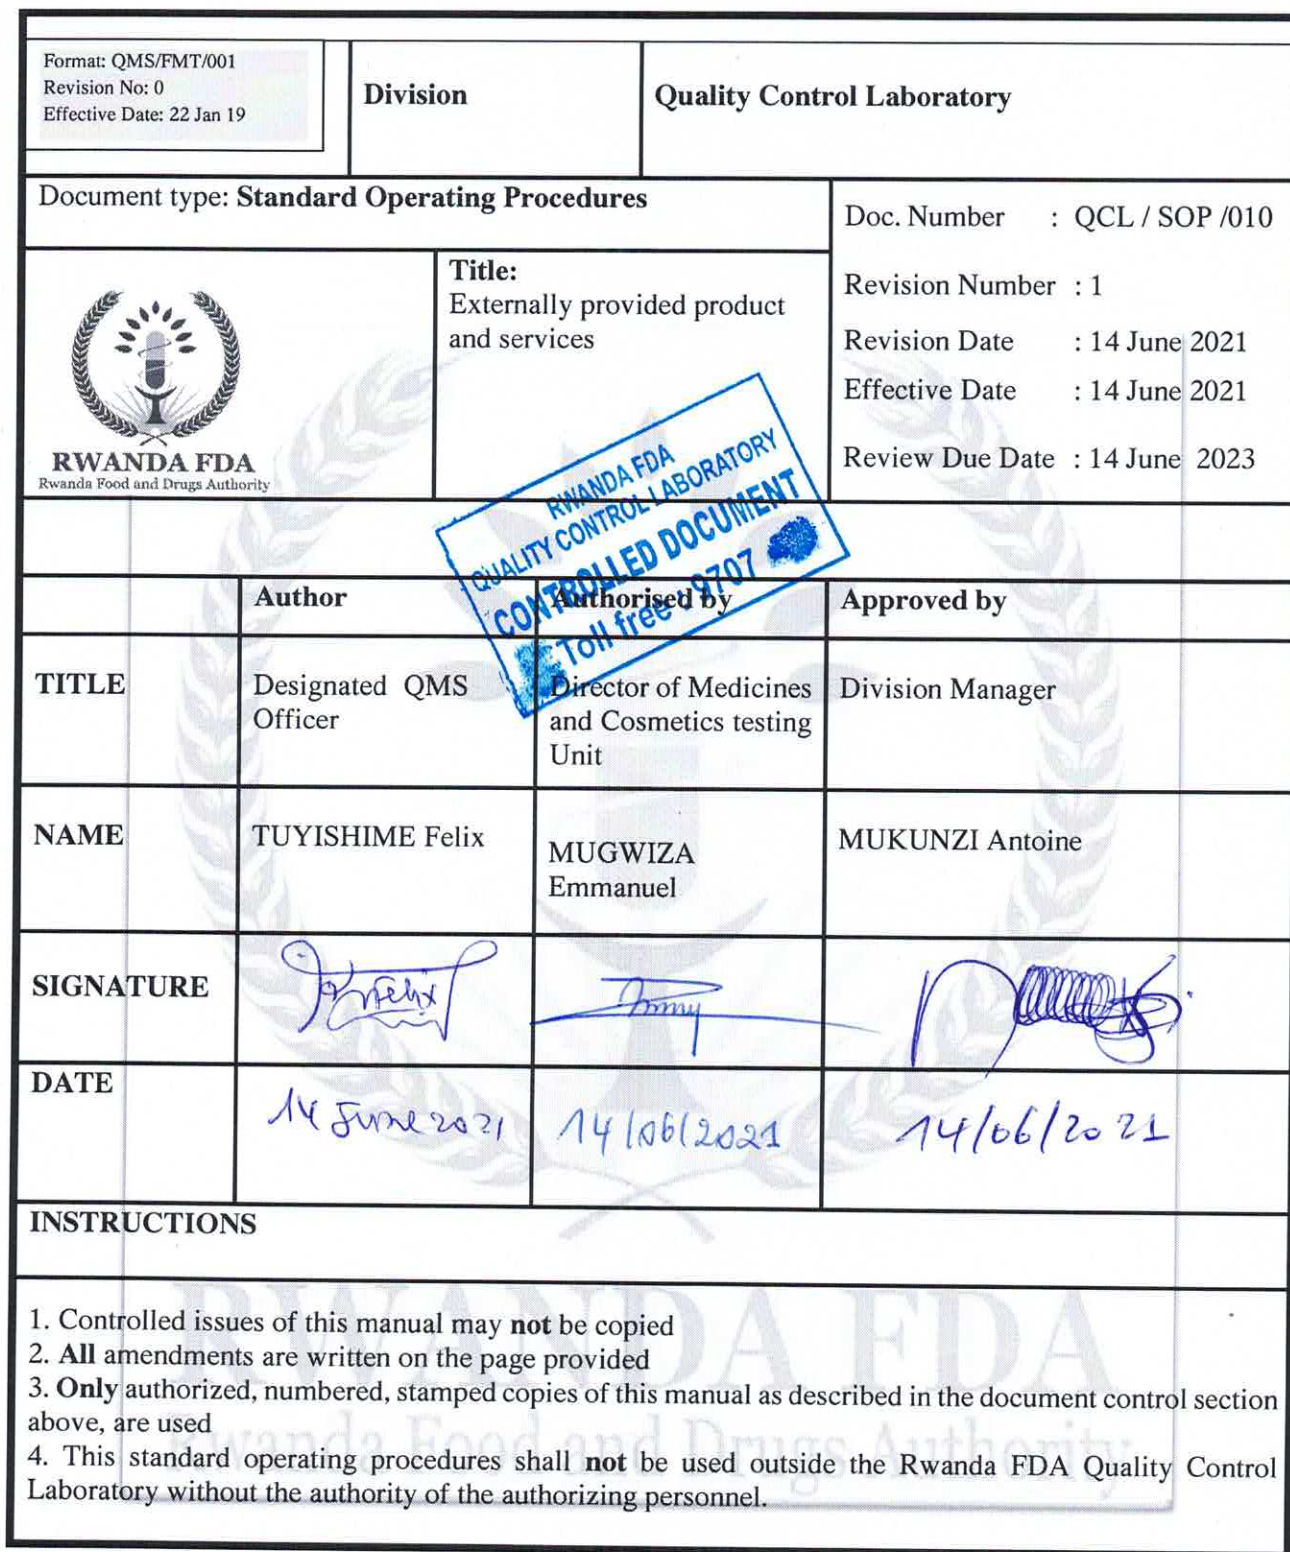 Format: QMS/FMT/001
Revision No: 0
Effective Date: 22 Jan 19
Division
Quality Control Laboratory
Document type: Standard Operating Procedures
Doc. Number : QCL / SOP /010
Revision Number : 1
Revision Date : 14 June 2021
Effective Date : 14 June 2021
Review Due Date : 14 June 2023
RWANDA FDA
Rwanda Food and Drugs Authority
Title:
Externally provided product
and services
RWANDA FDA
QUALITY CONTROL LABORATORY
CONTROLLED DOCUMENT
Toll free : 9707
Author
Authorised by
Approved by
TITLE
Designated QMS
Officer
Director of Medicines
and Cosmetics testing
Unit
Division Manager
NAME
TUYISHIME Felix
MUGWIZA
Emmanuel
MUKUNZI Antoine
SIGNATURE
Felix
DATE
14 June 2021
14/06/2021
14/06/2021
INSTRUCTIONS
1. Controlled issues of this manual may not be copied
2. All amendments are written on the page provided
3. Only authorized, numbered, stamped copies of this manual as described in the document control section
above, are used
4. This standard operating procedures shall not be used outside the Rwanda FDA Quality Control
Laboratory without the authority of the authorizing personnel.
RWANDA FDA
Rwanda Food and Drugs Authority